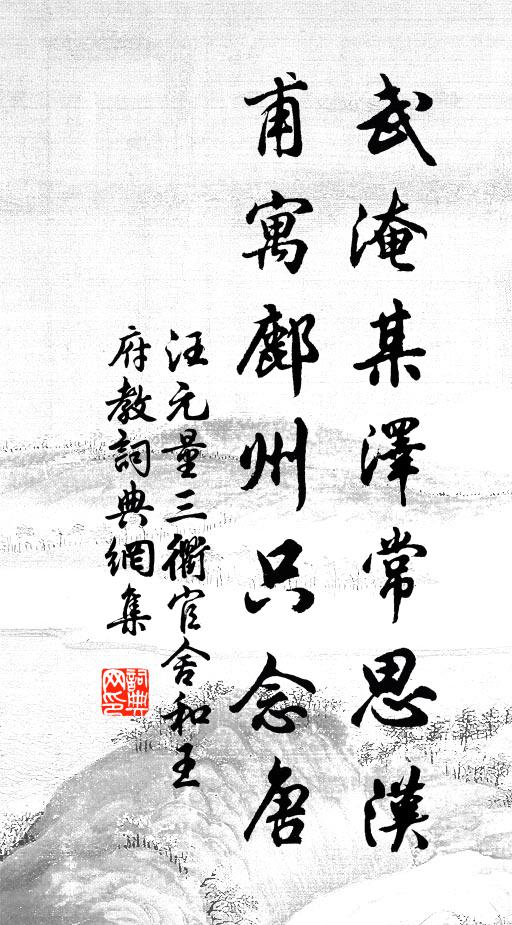 武淹某澤常思漢
甫寓鄜州只念唐
汪元量三衢官舍和王
府教詞典網集
詞典网印